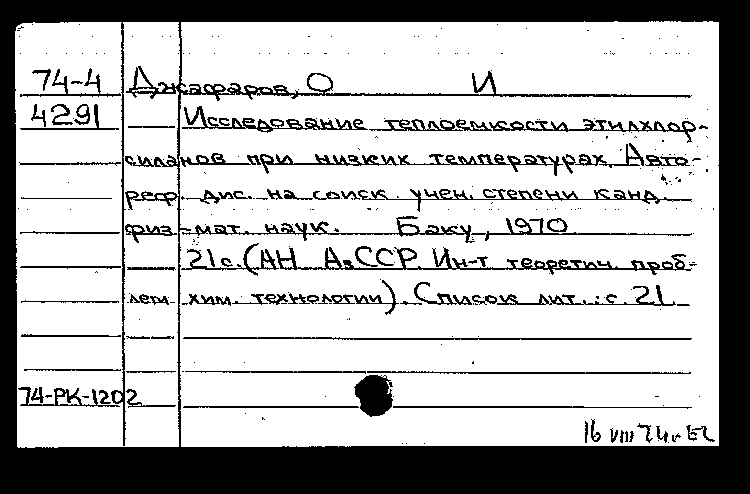 74-4 Джафаров, О И
4291 Исследование теплоемкости этилхлор-
силанов при низких температурах. Авто-
реф. дис. на соиск. учен. степени канд.
физ-мат. наук. Баку, 1970
21с. (АН АзССР. Ин-т теоретич. проб-
лем хим. технологии). Список лит.: с. 21.
74-РК-1202
16 VIII 74г